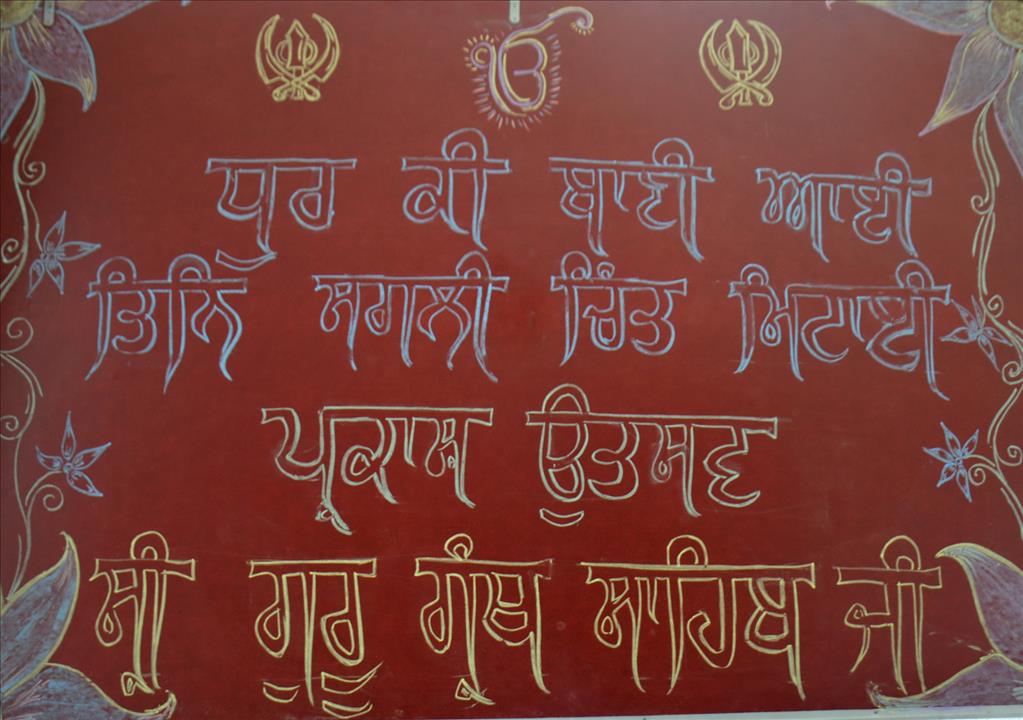 ੴ
ਧੁਰ ਕੀ ਬਾਣੀ ਆਈ
ਤਿਨਿ ਸਗਲੀ ਚਿੰਤ ਮਿਟਾਈ
ਪ੍ਰਕਾਸ਼ ਉਤਸਵ
ਸ੍ਰੀ ਗੁਰੂ ਗ੍ਰੰਥ ਸਾਹਿਬ ਜੀ